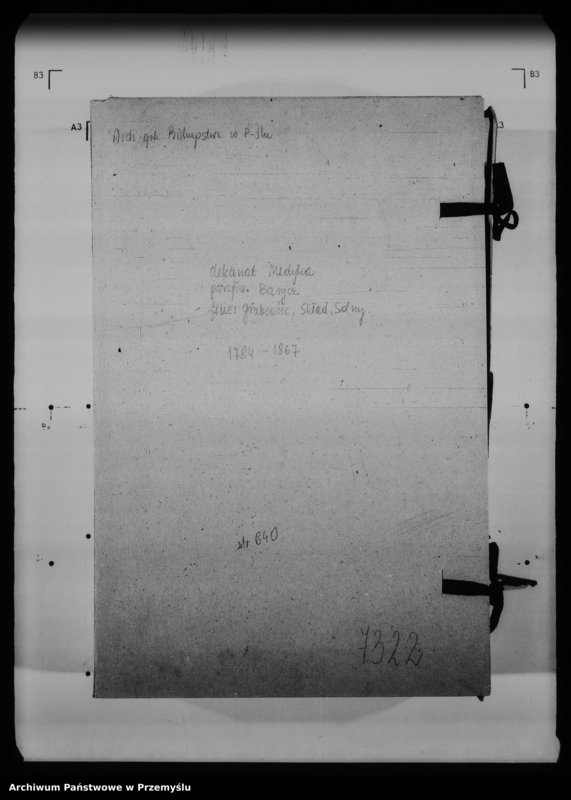 B3
B3
A3
Arch. gr.k. Biskupstwa w P-ślu
dekanat Medyka
parafia Barycz
filie: Grabowiec, Skład Solny
1784 – 1867
str 640
7322
Archiwum Państwowe w Przemyślu